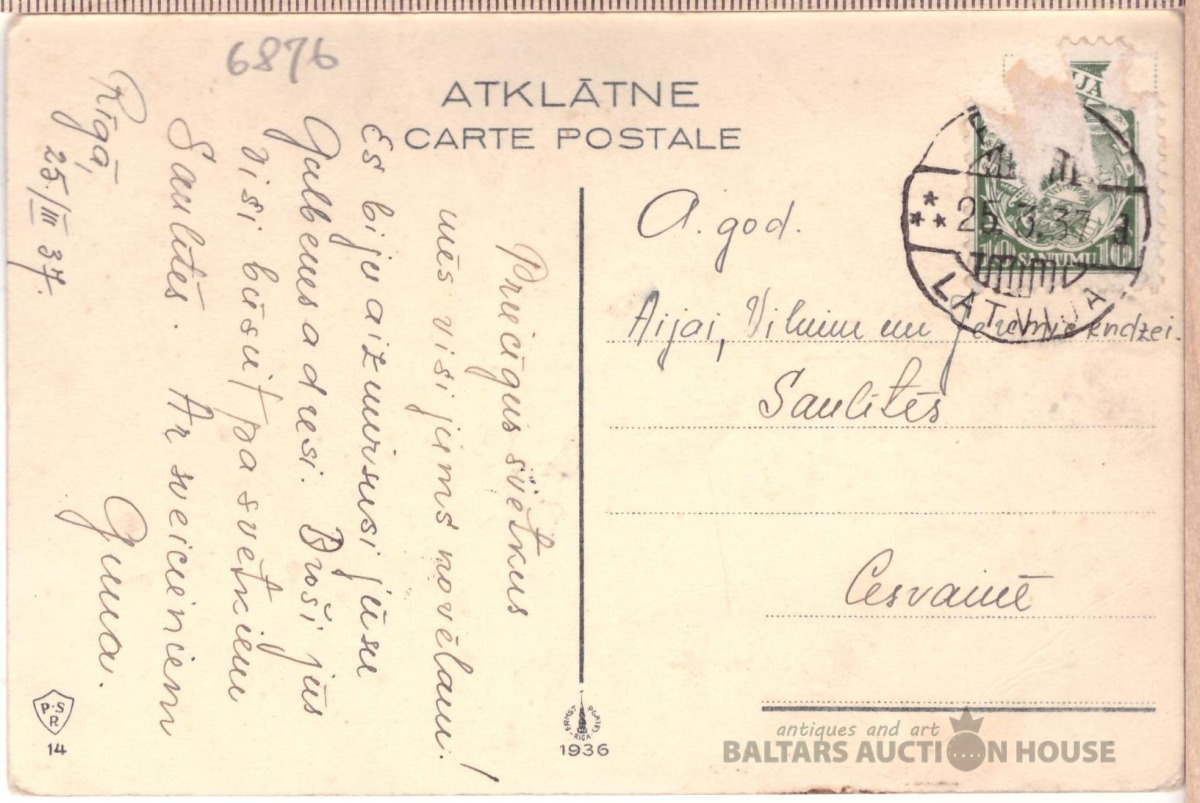 6876
ATKLĀTNE
CARTE POSTALE
Priecīgus svētkus
mēs visi jums novēlam!
Es biju aizmirsusi jūsu
Gulbenes adresi. Droši jūs
visi būsit pa svētkiem
Saulītēs. Ar sveicieniem
Guna.
Rīgā,
25./III 37.
A. god.
Aijai, Vilnim un
Saulītēs
Cesvainē
IJA
10 SANTIMU 10
25.3.37 1
LATVIJA
P.S.R
14
ERNST PLATES
RIGA
1936
antiques and art
BALTARS AUCTION HOUSE